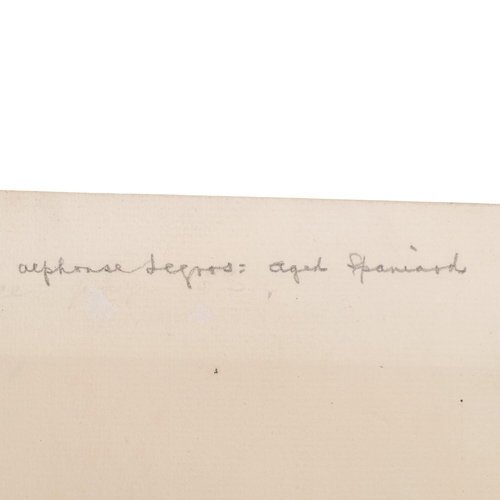 Alphonse Legros = Aged Spaniard